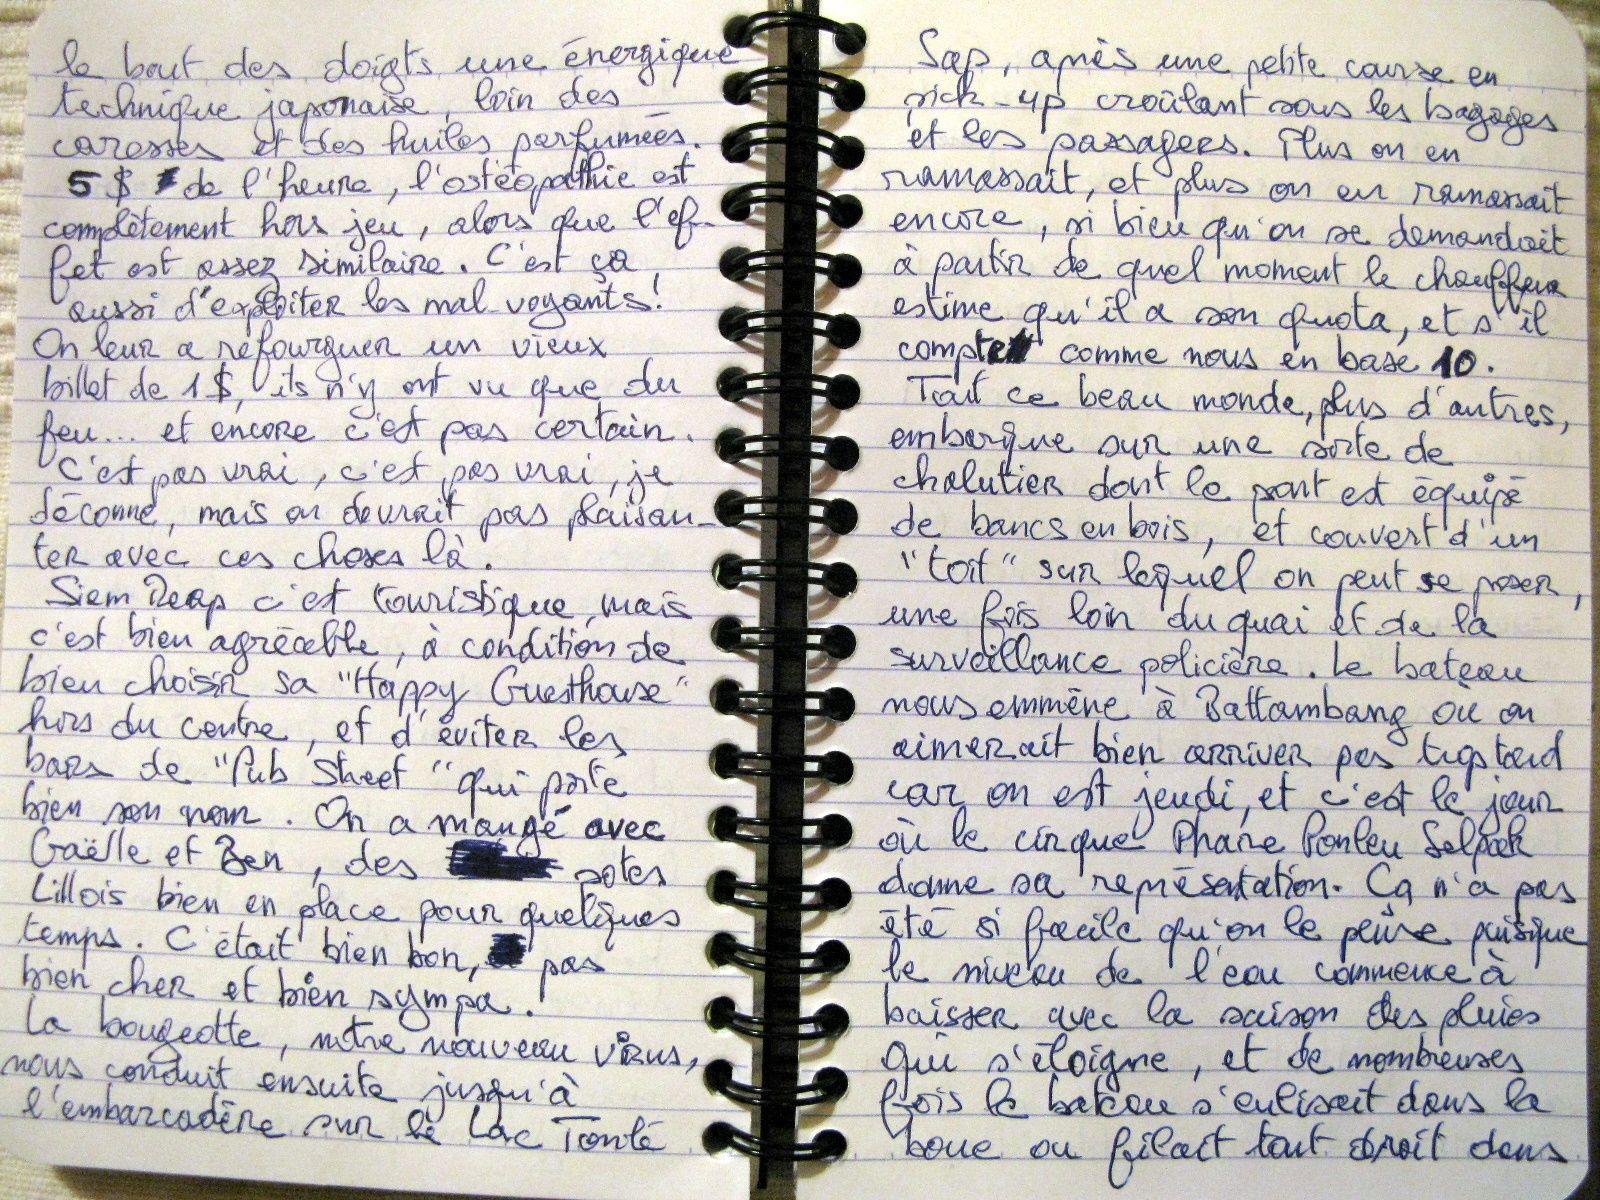 le bout des doigts une énergique
technique japonaise, loin des
caresses et des huiles parfumées.
5$ de l'heure, l'ostéopathie est
complètement hors jeu, alors que l'ef-
fet est assez similaire. C'est ça
aussi d'exploiter les mal-voyants!
On leur a refourguer un vieux
billet de 1$, ils n'y ont vu que du
feu... et encore c'est pas certain.
C'est pas vrai, c'est pas vrai, je
déconne, mais on devrait pas plaisan-
ter avec ces choses là.
Siem Reap c'est touristique, mais
c'est bien agréable, à condition de
bien choisir sa "Happy Guesthouse"
hors du centre, et d'éviter les
bars de "Pub Street" qui porte
bien son nom. On a mangé avec
Gaëlle et Ben, des potes
Lillois bien en place pour quelques
temps. C'était bien bon, pas
bien cher et bien sympa.
La bougeotte, notre nouveau virus,
nous conduit ensuite jusqu'à
l'embarcadère sur le Lac Tonlé
Sap, après une petite course en
pick-up croûlant sous les bagages
et les passagers. Plus on en
ramassait, et plus on en ramassait
encore, si bien qu'on se demandait
à partir de quel moment le chauffeur
estime qu'il a son quota, et s'il
compte comme nous en base 10.
Tout ce beau monde, plus d'autres,
embarque sur une sorte de
chalutier dont le pont est équipé
de bancs en bois, et couvert d'un
"toit" sur lequel on peut se poser,
une fois loin du quai et de la
surveillance policière. Le bateau
nous emmène à Battambang où on
aimerait bien arriver pas trop tard
car on est jeudi, et c'est le jour
où le cirque Phare Ponleu Selpak
donne sa représentation. Ça n'a pas
été si facile qu'on le pense puisque
le niveau de l'eau commence à
baisser avec la saison des pluies
qui s'éloigne, et de nombreuses
fois le bateau s'enlisait dans la
boue ou filait tout droit dans